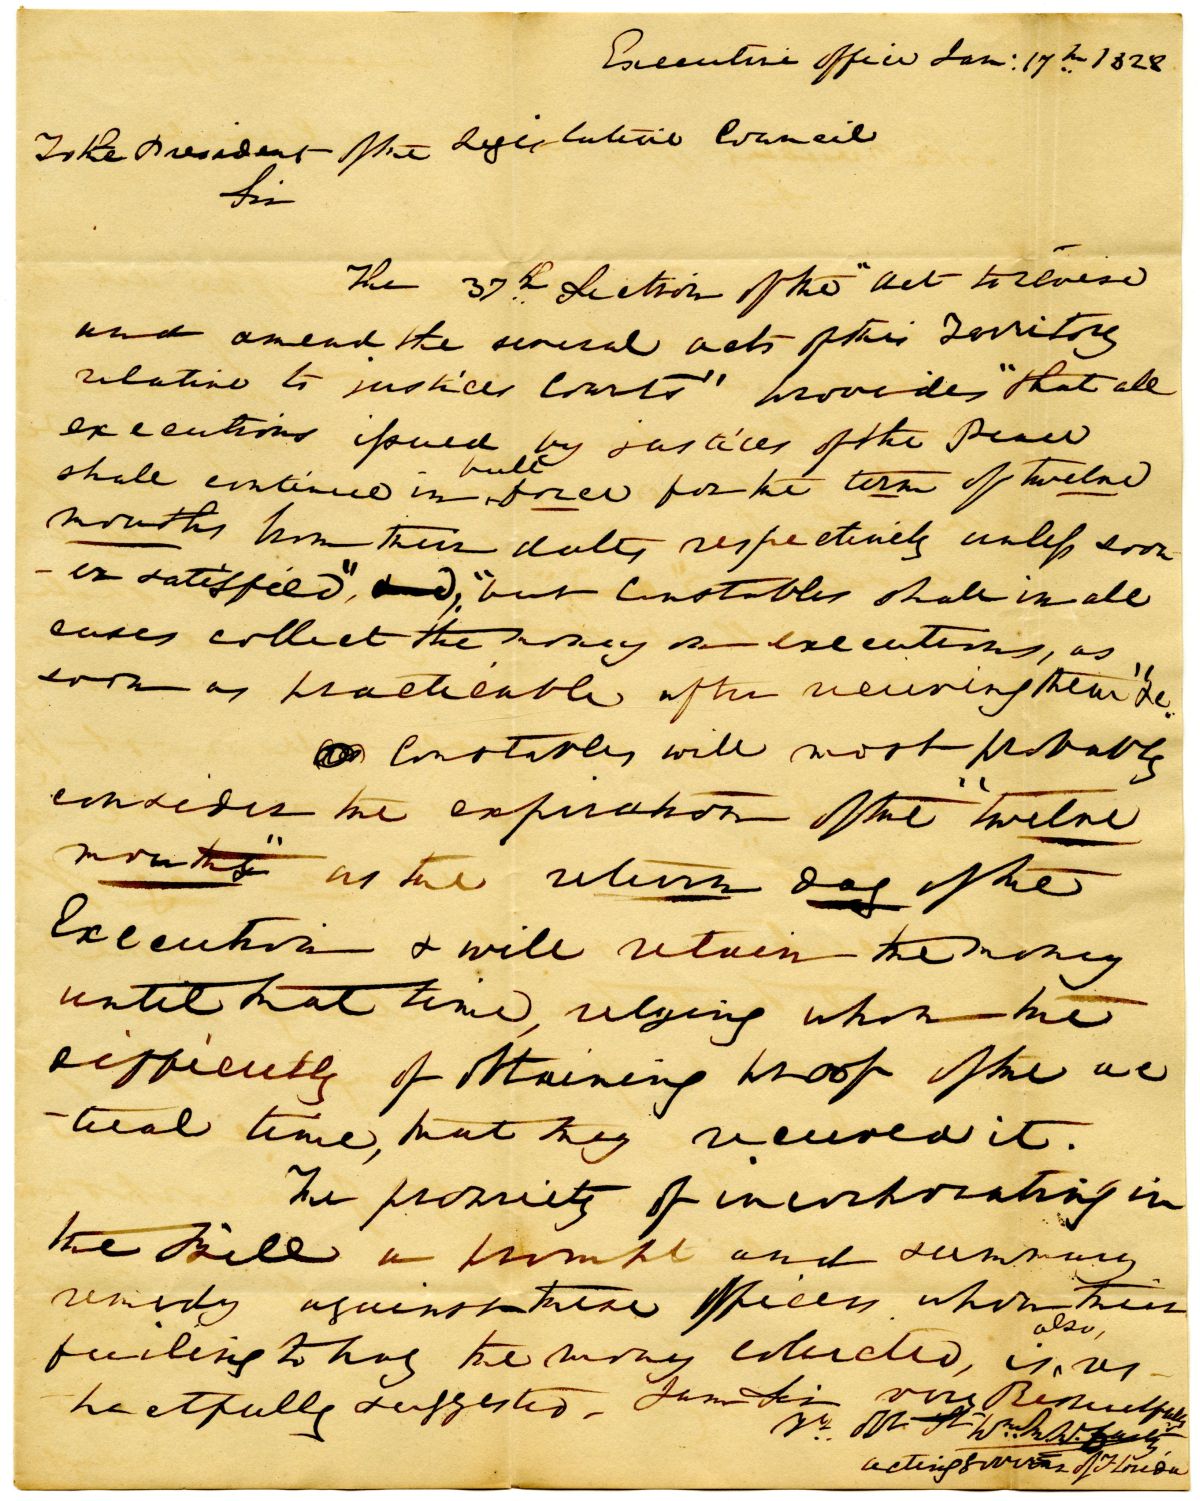 Executive office Jan: 17th 1828
To the President of the Legislative Council
Sir
The 37th Section of the "Act to revise
and amend the several acts of this Territory
relative to justices Courts" provides "that all
executions issued by justices of the Peace
shall continue in full force for the term of twelve
months from their dates respectively unless soon
-er satisfied", and, "but Constables shall in all
cases collect the money on executions, as
soon as practicable after receiving them" &c.
Constables will most probably
consider the expiration of the "twelve
months" as the return day of the
Execution & will retain the money
until that time, relying upon the
difficulty of obtaining proof of the ac
-tual time, that they received it.
The propriety of incorporating in
the Bill a prompt and summary
remedy against these officers upon their
failing to pay the money collected, is, also, res-
-pectfully suggested. I am Sir very Respectfully
Yr. Obt. St. Wm. M
acting Governor of Florida